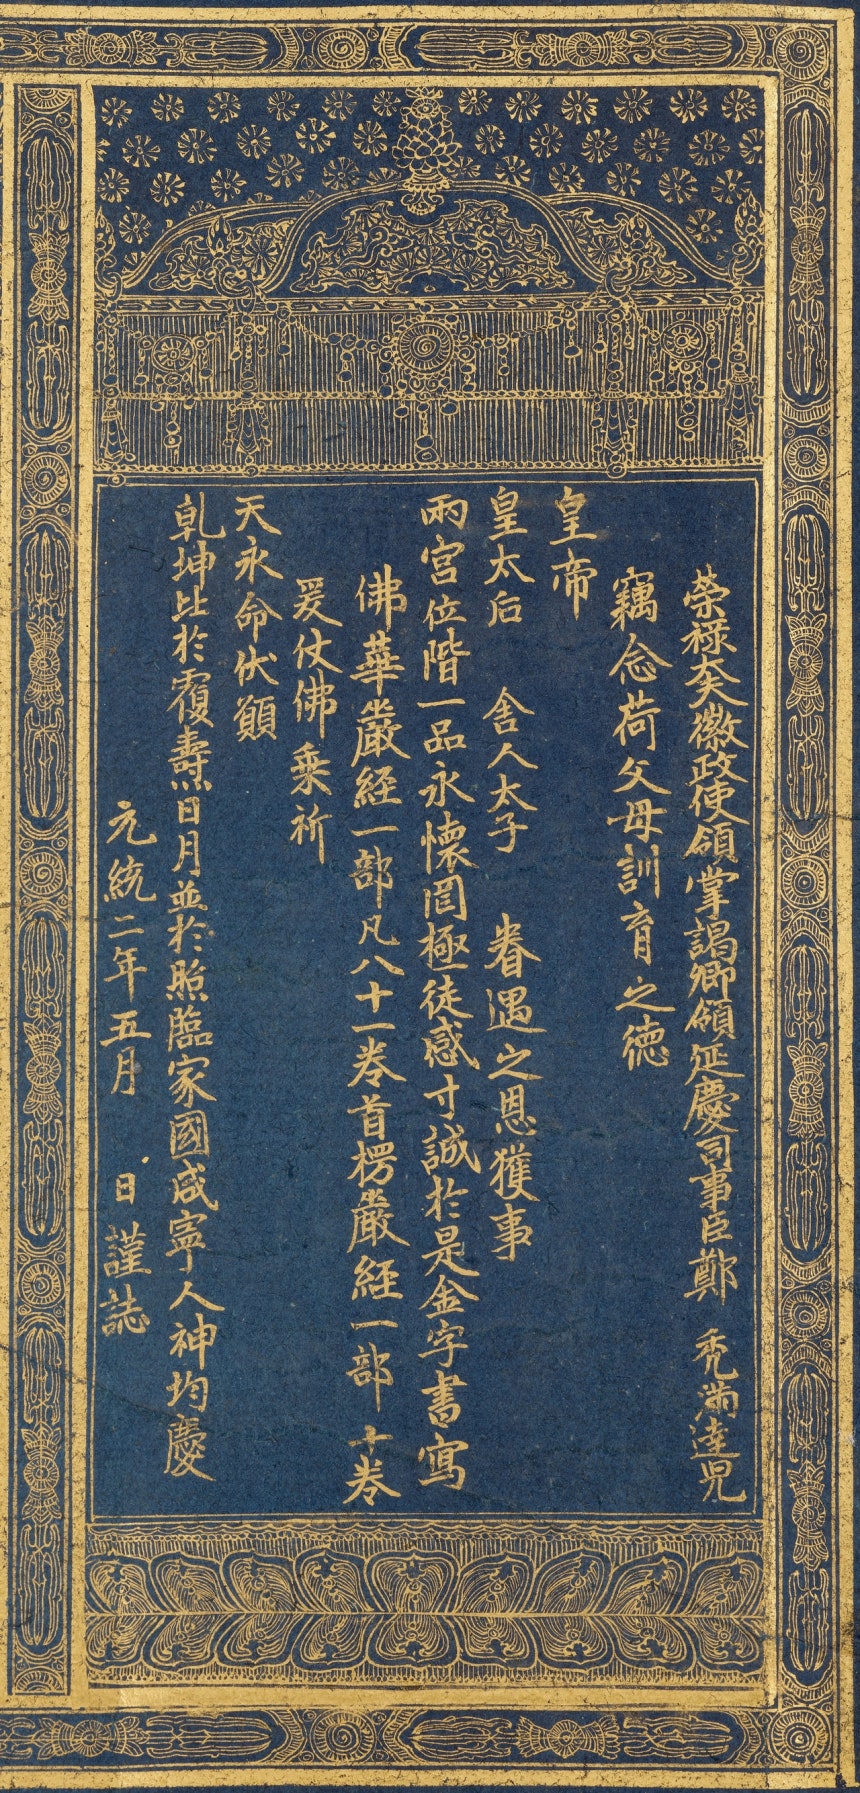 榮禄大夫徽政使領掌謁卿領延慶司事臣鄭 禿滿達児
竊念荷父母訓育之德
皇帝
皇太后 舎人太子 眷遇之恩獲事
兩宮位階一品永懷罔極徒感寸誠於是金字書寫
佛華嚴經一部凡八十一卷首楞嚴經一部十卷
爰仗佛乗祈
天永命伏願
乹坤比於覆燾日月並於照臨家國咸寧人神均慶
元統二年五月 日謹誌